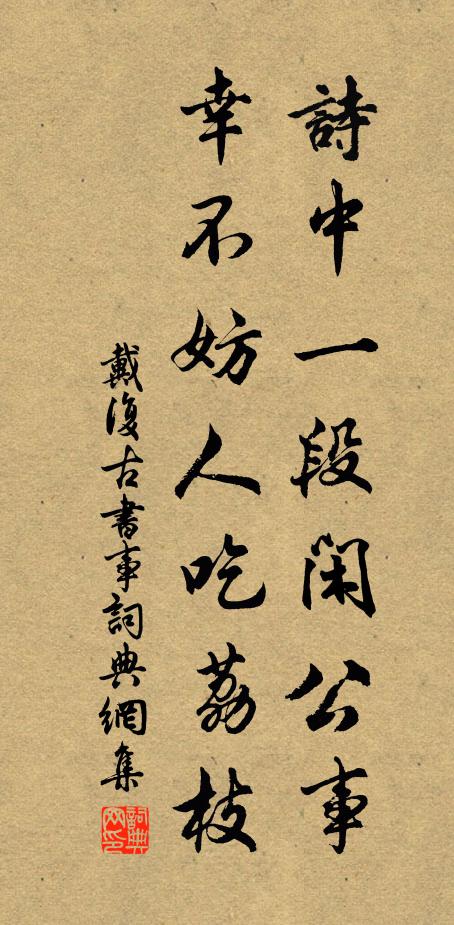 詩中一段閑公事
幸不妨人吃荔枝
戴復古書事詞典網集
詞典網印